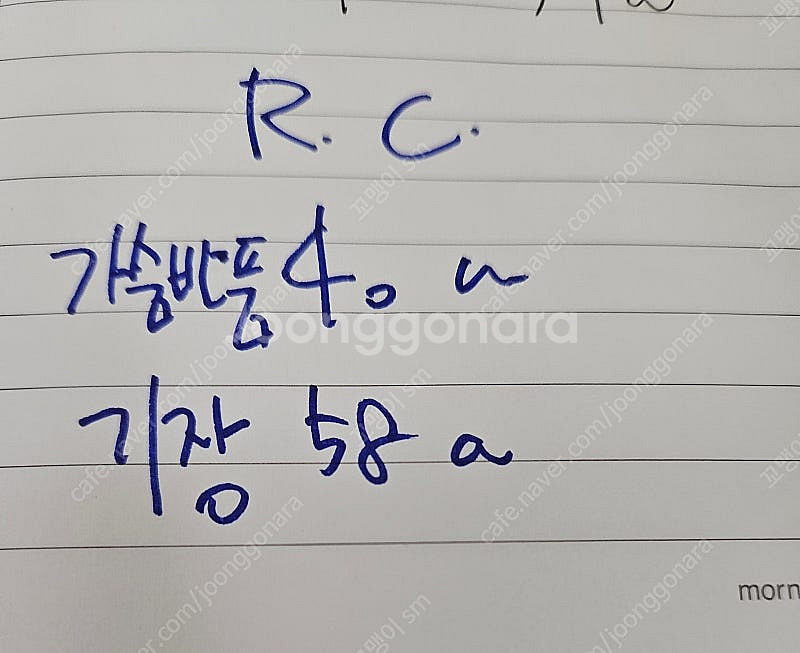 R. C.
가슴반품 40 a
기장 58 a
joonggonara
morn
cafe.naver.com/joonggonara
꼬맹이 sm